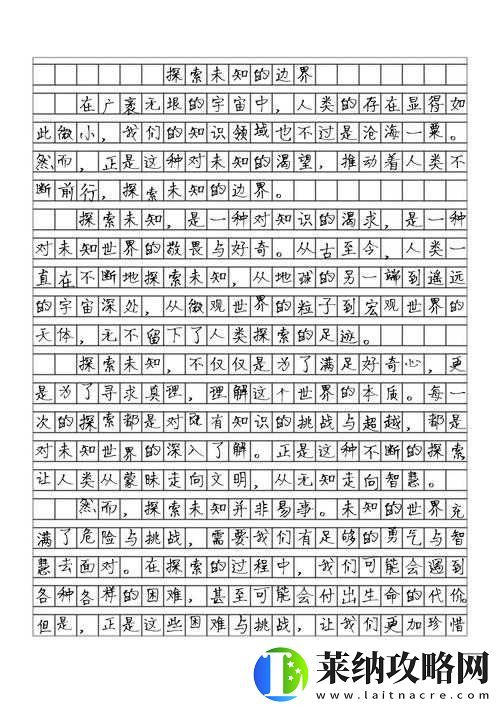 探索未知的边界
在广袤无垠的宇宙中，人类的存在显得如
此微小，我们的知识领域也不过是沧海一粟。
然而，正是这种对未知的渴望，推动着人类不
断前行，探索未知的边界。
探索未知，是一种对知识的渴求，是一种
对未知世界的敬畏与好奇。从古至今，人类一
直在不断地探索未知，从地球的另一端到遥远
的宇宙深处，从微观世界的粒子到宏观世界的
天体，无不留下了人类探索的足迹。
探索未知，不仅仅是为了满足好奇心，更
是为了寻求真理，理解这个世界的本质。每一
次的探索都是对既有知识的挑战与超越，都是
对未知世界的深入了解。正是这种不断的探索，
让人类从蒙昧走向文明，从无知走向智慧。
然而，探索未知并非易事。未知的世界充
满了危险与挑战，需要我们有足够的勇气与智
慧去面对。在探索的过程中，我们可能会遇到
各种各样的困难，甚至可能会付出生命的代价。
但是，正是这些困难与挑战，让我们更加珍惜
莱纳攻略网
www.laitnacre.com